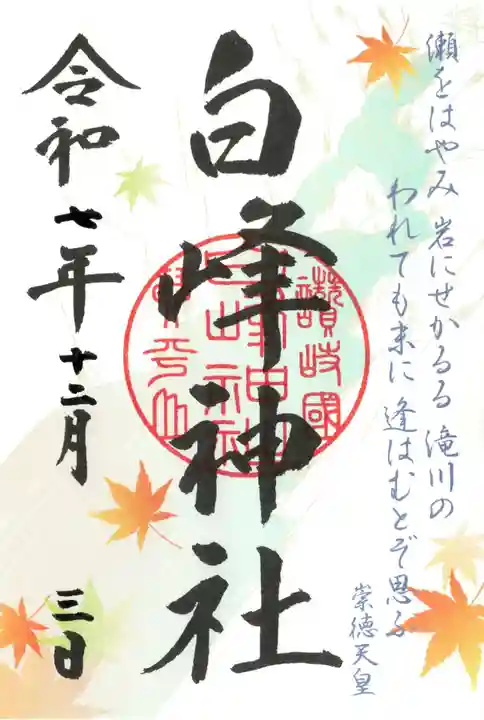 瀬をはやみ 岩にせかるる 滝川の
われても末に 逢はむとぞ思ふ
崇徳天皇
白峰神社
讃岐國
令和七年十二月
三日